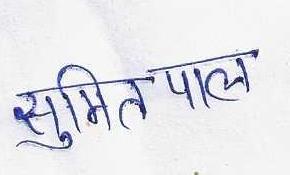 सुमित पाल